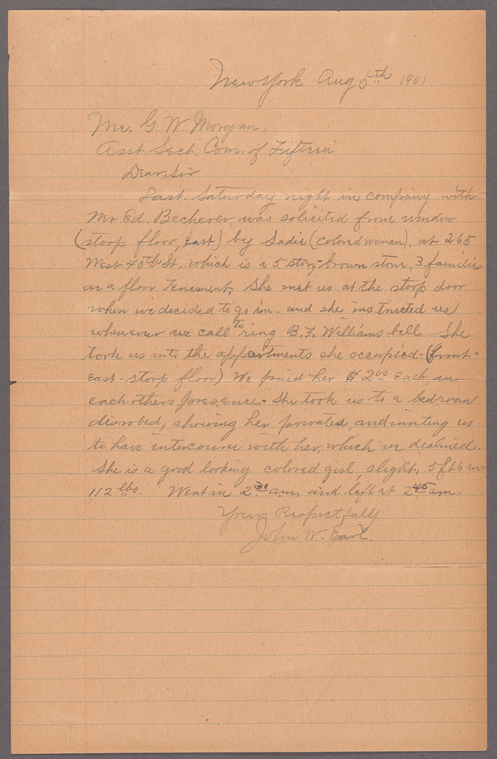 New York Aug 5th 1901
Mr. G. W. Morgan,
Asst. Sect. Com. of Fifteen
Dear Sir
Last Saturday night in company with
Mr Ed. Becherer, was solicited from window
(stoop floor, east) by Sadie (colord woman), at 265
West 40th St, which is a 5 story brown stone, 3 families
on a floor Tenement, She met us at the stoop door
when we decided to go in. and she instructed us
whenever we call to ring B. F. Williams bell. She
took us into the appartments she occupied (front-
east-stoop floor). We paid her $2.00 each in
each others presence. She took us to a bedroom
disrobed, showing her privates and inviting us
to have intercourse with her, which we declined.
She is a good looking colored girl, slight, 5 ft 6 in
112 lbs Went in 2 30 a.m. and left at 2 45 a.m.
Yours Respectfully
John W. Earl.